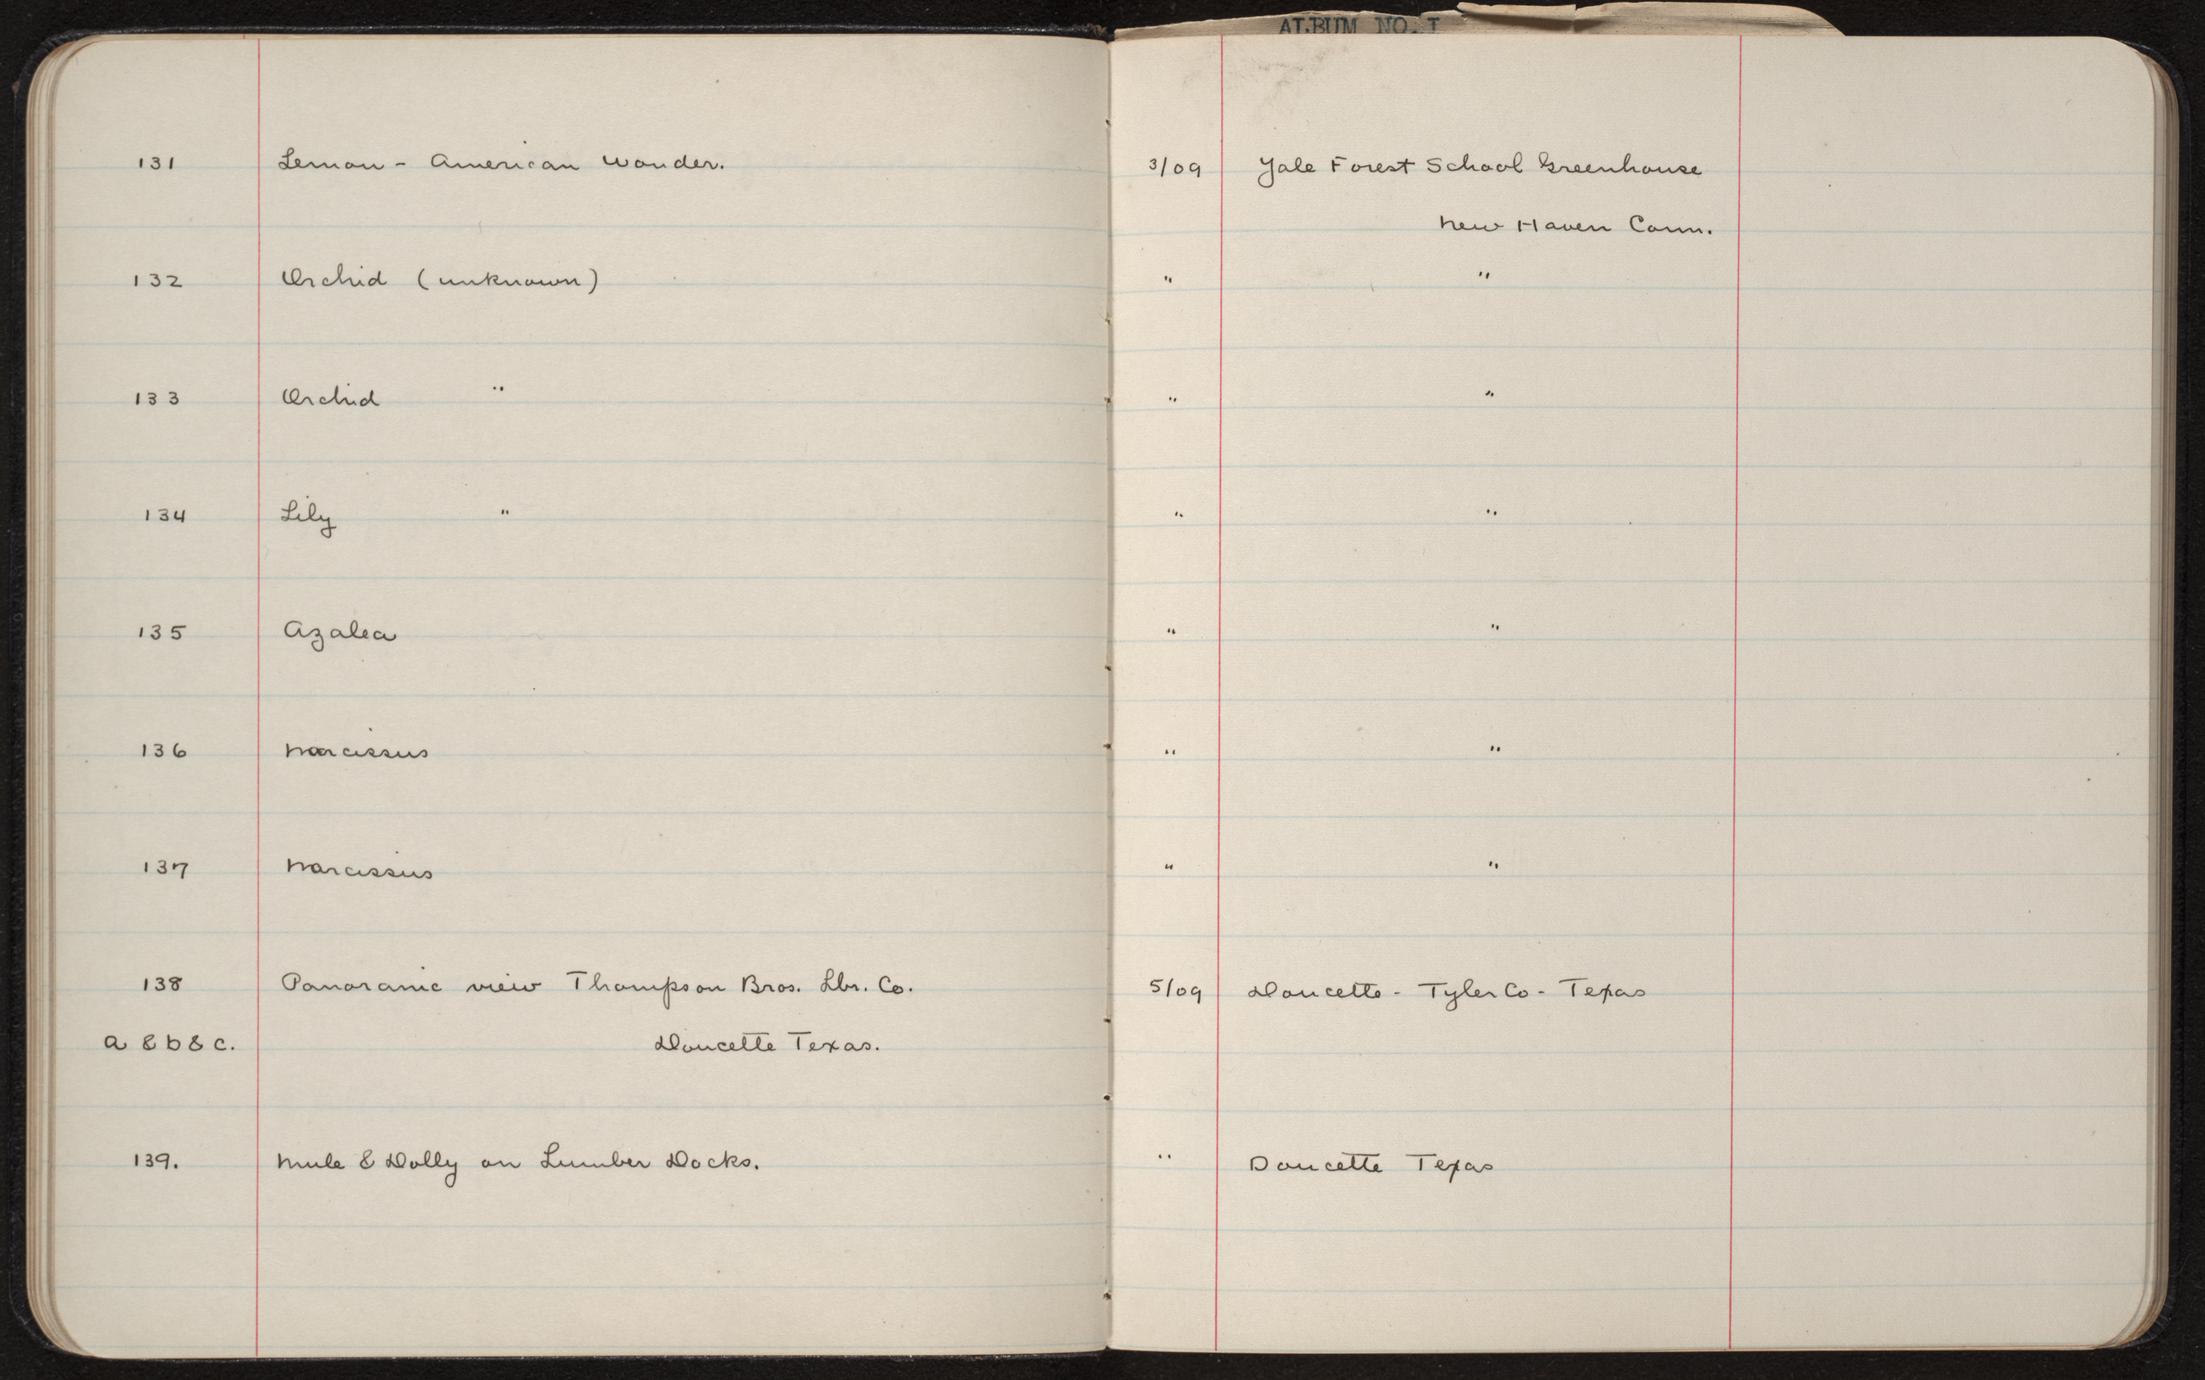 ALBUM NO. I
131 Lemon - American Wonder. 3/09 Yale Forest School Greenhouse
New Haven Conn.
132 Orchid (unknown) " "
133 Orchid " " "
134 Lily " " "
135 Azalea " "
136 Narcissus " "
137 Narcissus " "
138 Panoramic view Thompson Bros. Lbr. Co. 5/09 Doucette - Tyler Co - Texas
a & b & c. Doucette Texas.
139. Mule & Dolly on Lumber Docks. " Doucette Texas